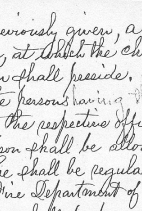 eviously given, a
, at which the ch
n shall preside.
e persons having
the respective offi
son shall be allow
he shall be regula
Fire Department of